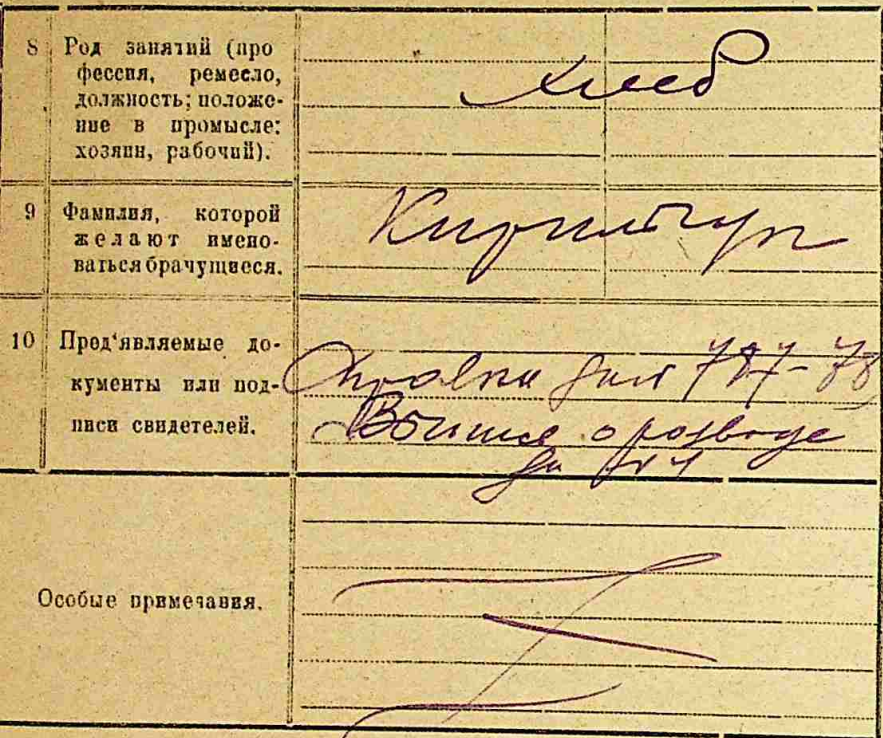 8 Род занятий (про
фессия, ремесло,
должность; положе-
ние в промысле:
хозяин, рабочий).
хлеб
9 Фамилия, которой
желают имено-
ваться брачущиеся.
10 Пред'являемые до-
кументы или под-
писи свидетелей.
787-78
о разводе
за №
Особые примечания.